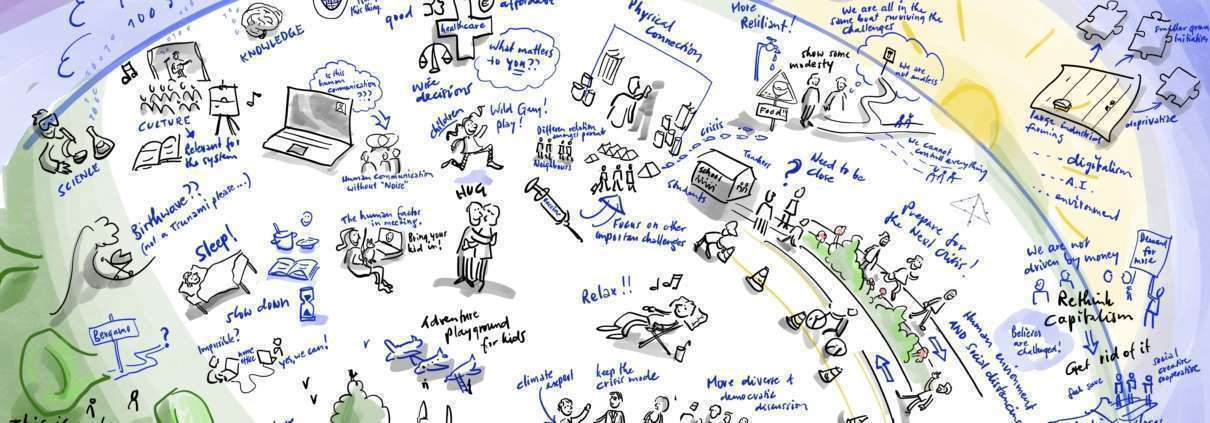 100
KNOWLEDGE
this thing.
good
healthcare
wise
decisions
What matters
to you??
Is this
human
communication
???
CULTURE
Relevant for
the system
SCIENCE
Human communication
without "Noise"
children
Wild Game!
play!
HUG
Different relation
amongst parents
Neighbours
Physical
Connection
crisis
Focus on other
importen challenges
More
Resiliant!
Food
show some
modesty
We are all in the
same boat surviving the
challenges
We are
not endless
We cannot
controll everything
smaller
Initiatives
large industrial
farming
deprivatise
digitalism
A.I.
enviroment
School
Teachers
Students
?
Need to be
close
Prepare for
the Next Crisis!
Birthwave??
(not a Tsunami please...)
Sleep!
slow down
The human factor
in meeting.
Bring your
kid on!
Relax!!
Bergamo
?
Impossible?
home
office
yes, we can!
Adventure
Playground
for kids
climate
expert
keep the
crisis mode
More diverse &
democratic
discussion
Human enviroment
AND social distancing
We are not
driven by money
Demand
for
more
Rethink
Capitalism
Believes
are
challenged!
Get rid of it
creative
cooperative
This is